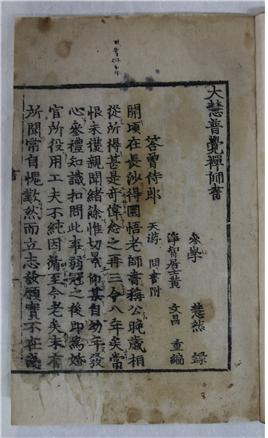 大慧普覺禪師書
參學 慧然 錄
淨智居士黃 文昌 重編
答曾侍郎 天游 問書附
開頃在長沙得圜悟老師書稱公晚歲相
從所得甚是奇偉念之再三今八年矣常
恨未獲親聞緖餘惟切景仰某自幼年發
心參禮知識扣問此事弱冠之後即爲婚
官所役用工夫不純因循至今老矣未有
所聞常自愧歎然而立志發願實不在淺